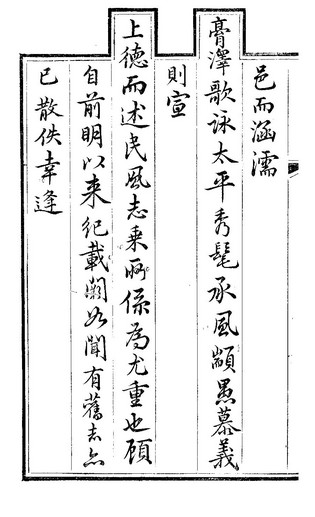 邑而涵濡
膏澤歌詠太平秀髦承風顓愚慕義
則宣
上德而述民風志乗所係為尤重也顧
自前明以来紀載闕如聞有舊志亦
已散佚幸逢